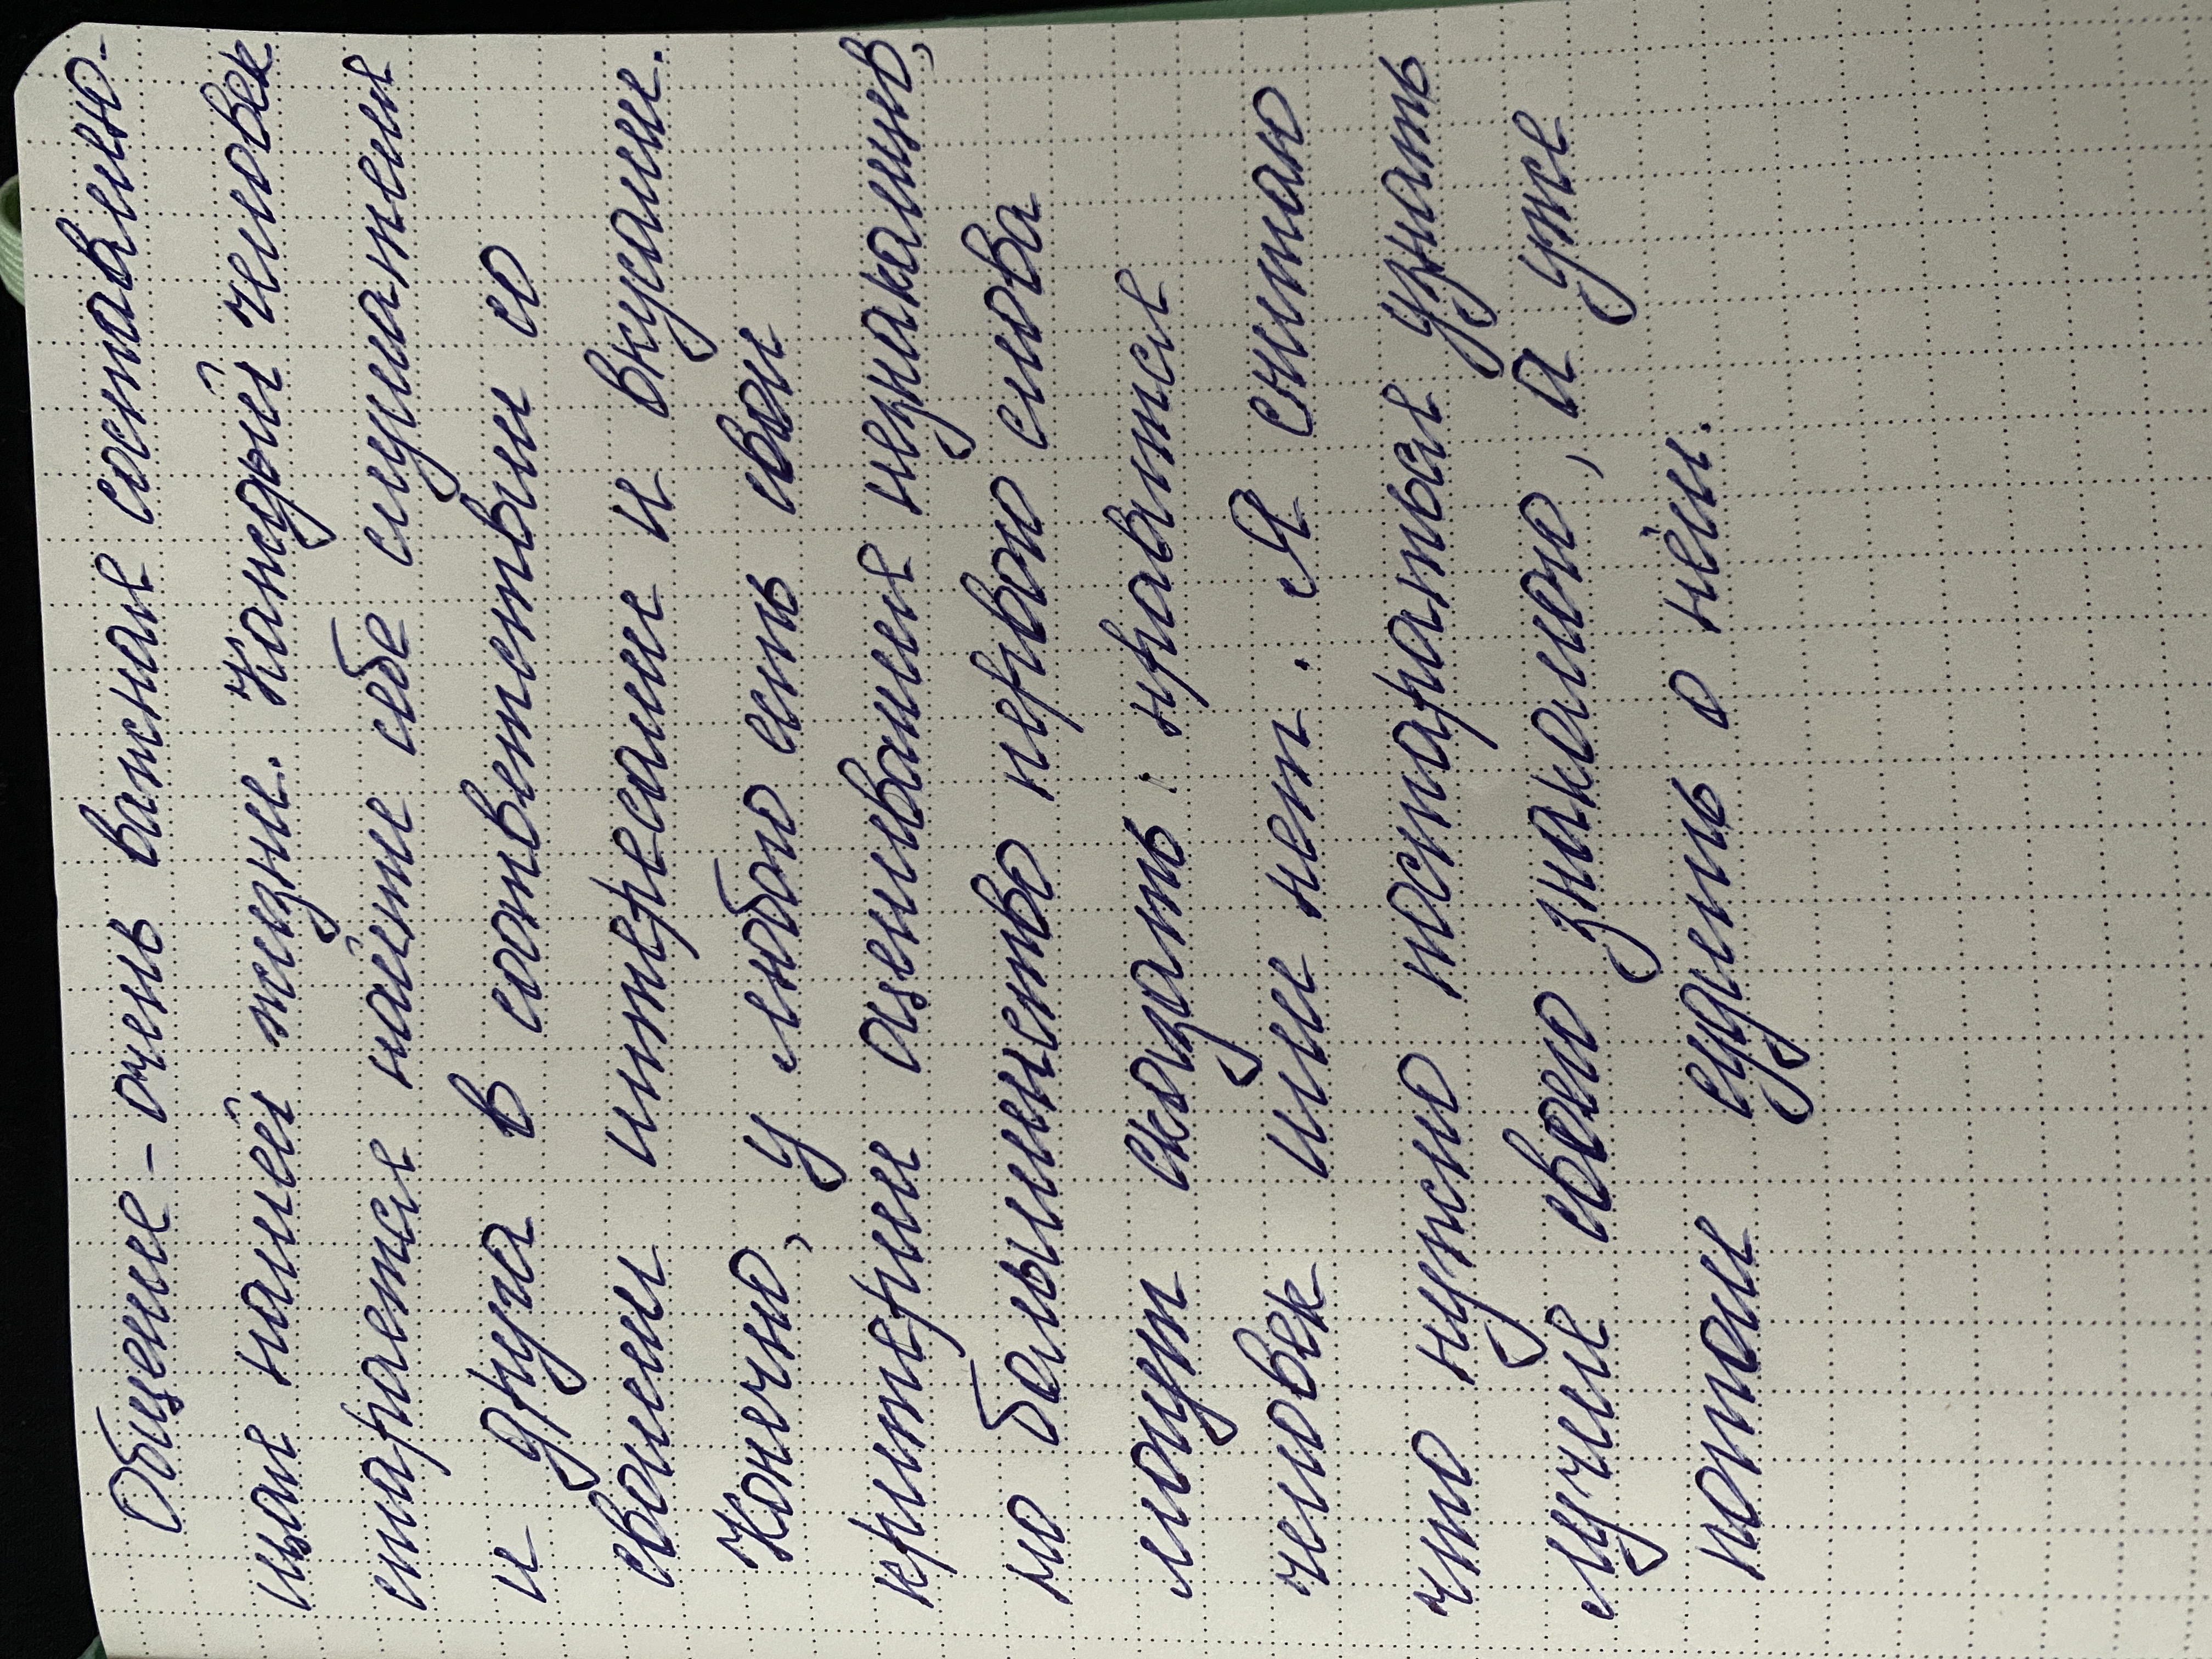 Общение - очень важная составляю-
щая нашей жизни. Каждый человек
старается найти себе слушателя
и друга в соответствии со
своими интересами и вкусами.
Конечно, у любого есть свои
критерии оценивания незнакомцев,
но большинство первого слова
могут сказать: нравится
человек или нет. Я считаю
что нужно постараться узнать
лучше своего знакомого, а уже
потом судить о нём.